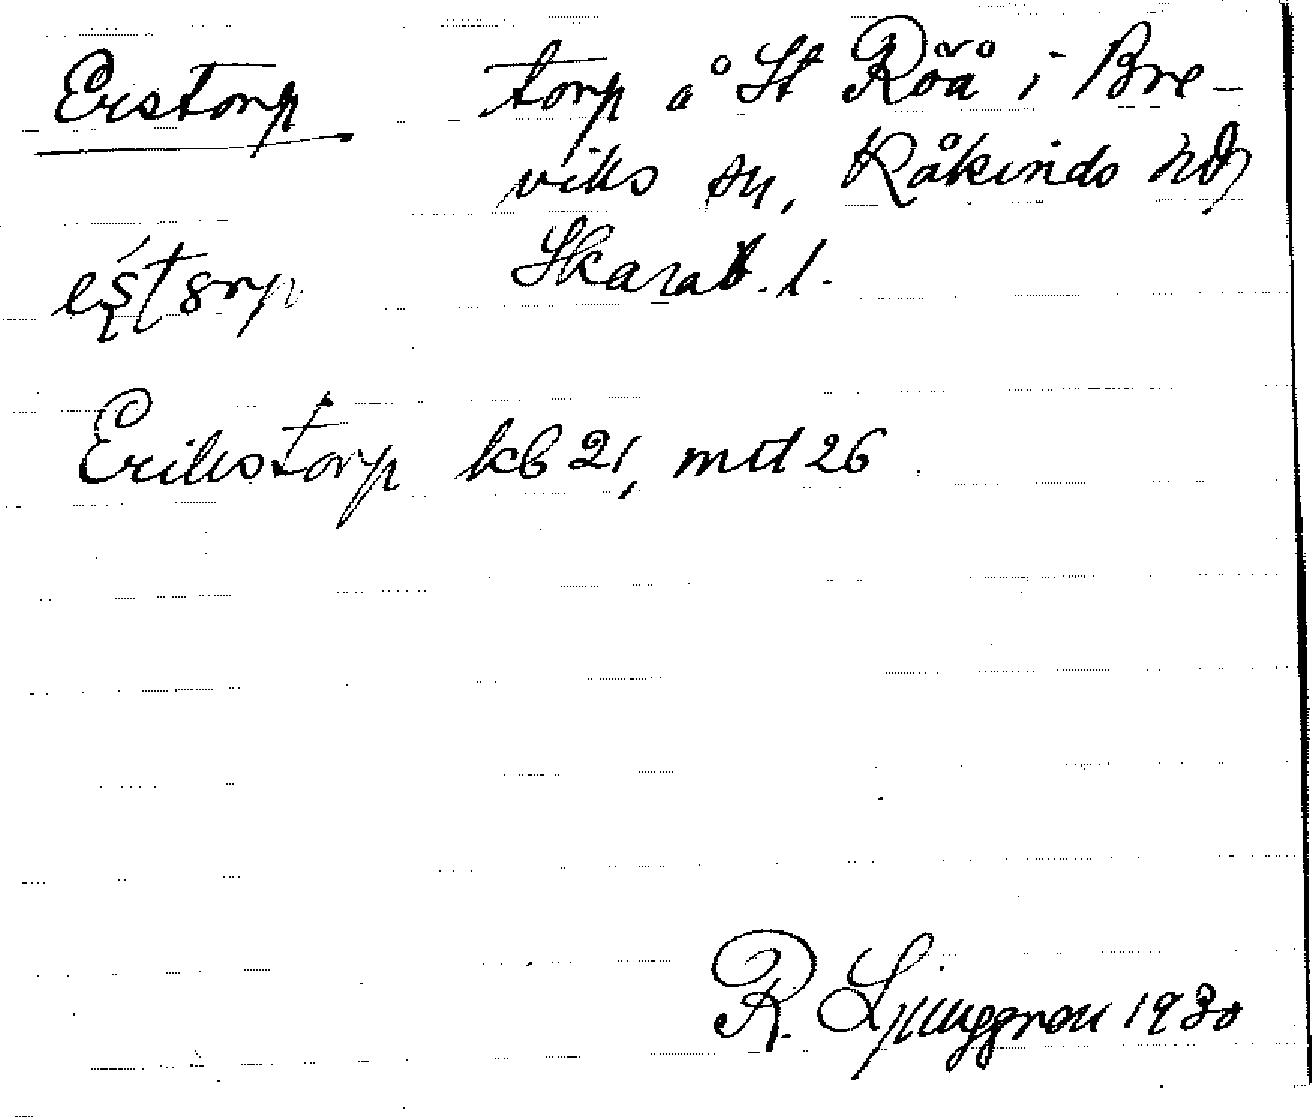 Erstorp torp å St Röå i Bre-
viks sn, Kåkinds hd
Skarab. l.
Erikstorp kb 21, mtl 26
R. Ljunggren 1930